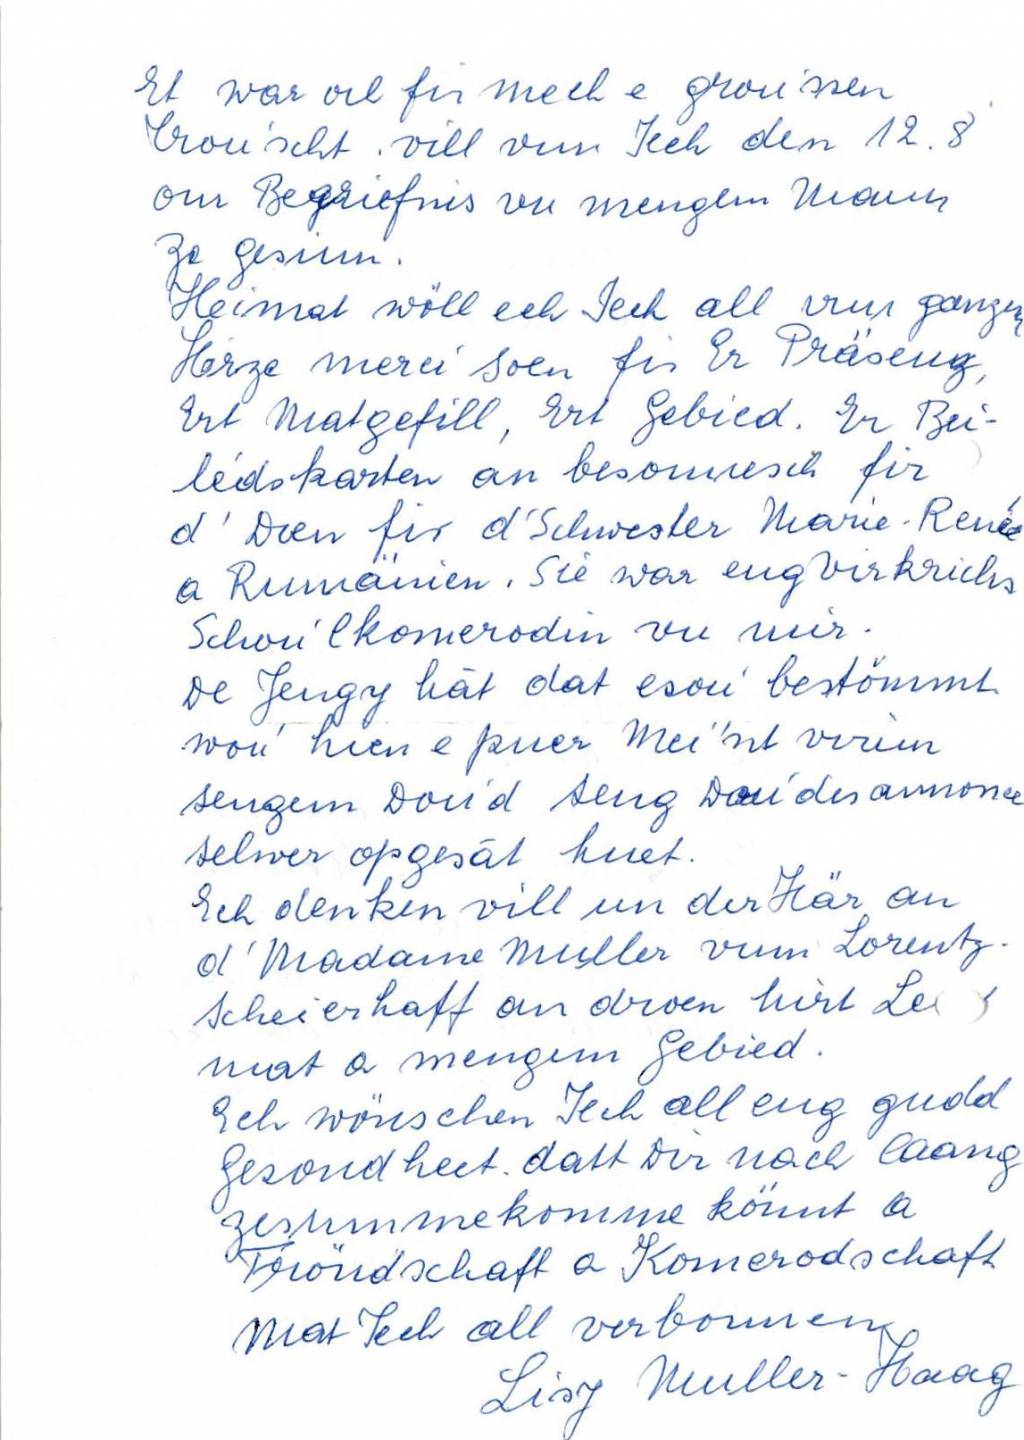 Et war och fir mech e grouissen
Trouscht, vill vun Iech den 12.8
om Begriefnis vu mengem Mann
ze gesinn.
Heimat wöll ech Iech all vun ganzem
Hërze merci soen fir Er Präsenz,
Ert Matgefill, Ert Gebied. Er Bei-
leidskarten an besonnesch fir
d' Doen fir d'Schwester Marie-Renée
a Rumänien. Sie war eng Virkrichs
Schoulkomerodin vu mir.
De Jengy hät dat esou bestömmt
wou hien e puer Méint virun
sengem Doud seng Doudesannonce
selwer opgesät huet.
Ech denken vill un der Här an
d'Madame Muller vum Lorentz-
scheierhaff an droen hirt Leed
mat a mengem Gebied.
Ech wönschen Iech all eng gudd
Gesondheet. datt Dir nach laang
zesummekomme könnt a
Fröndschaft a Komerodschaft
Mat Iech all verbonnen
Lisy Muller-Haag